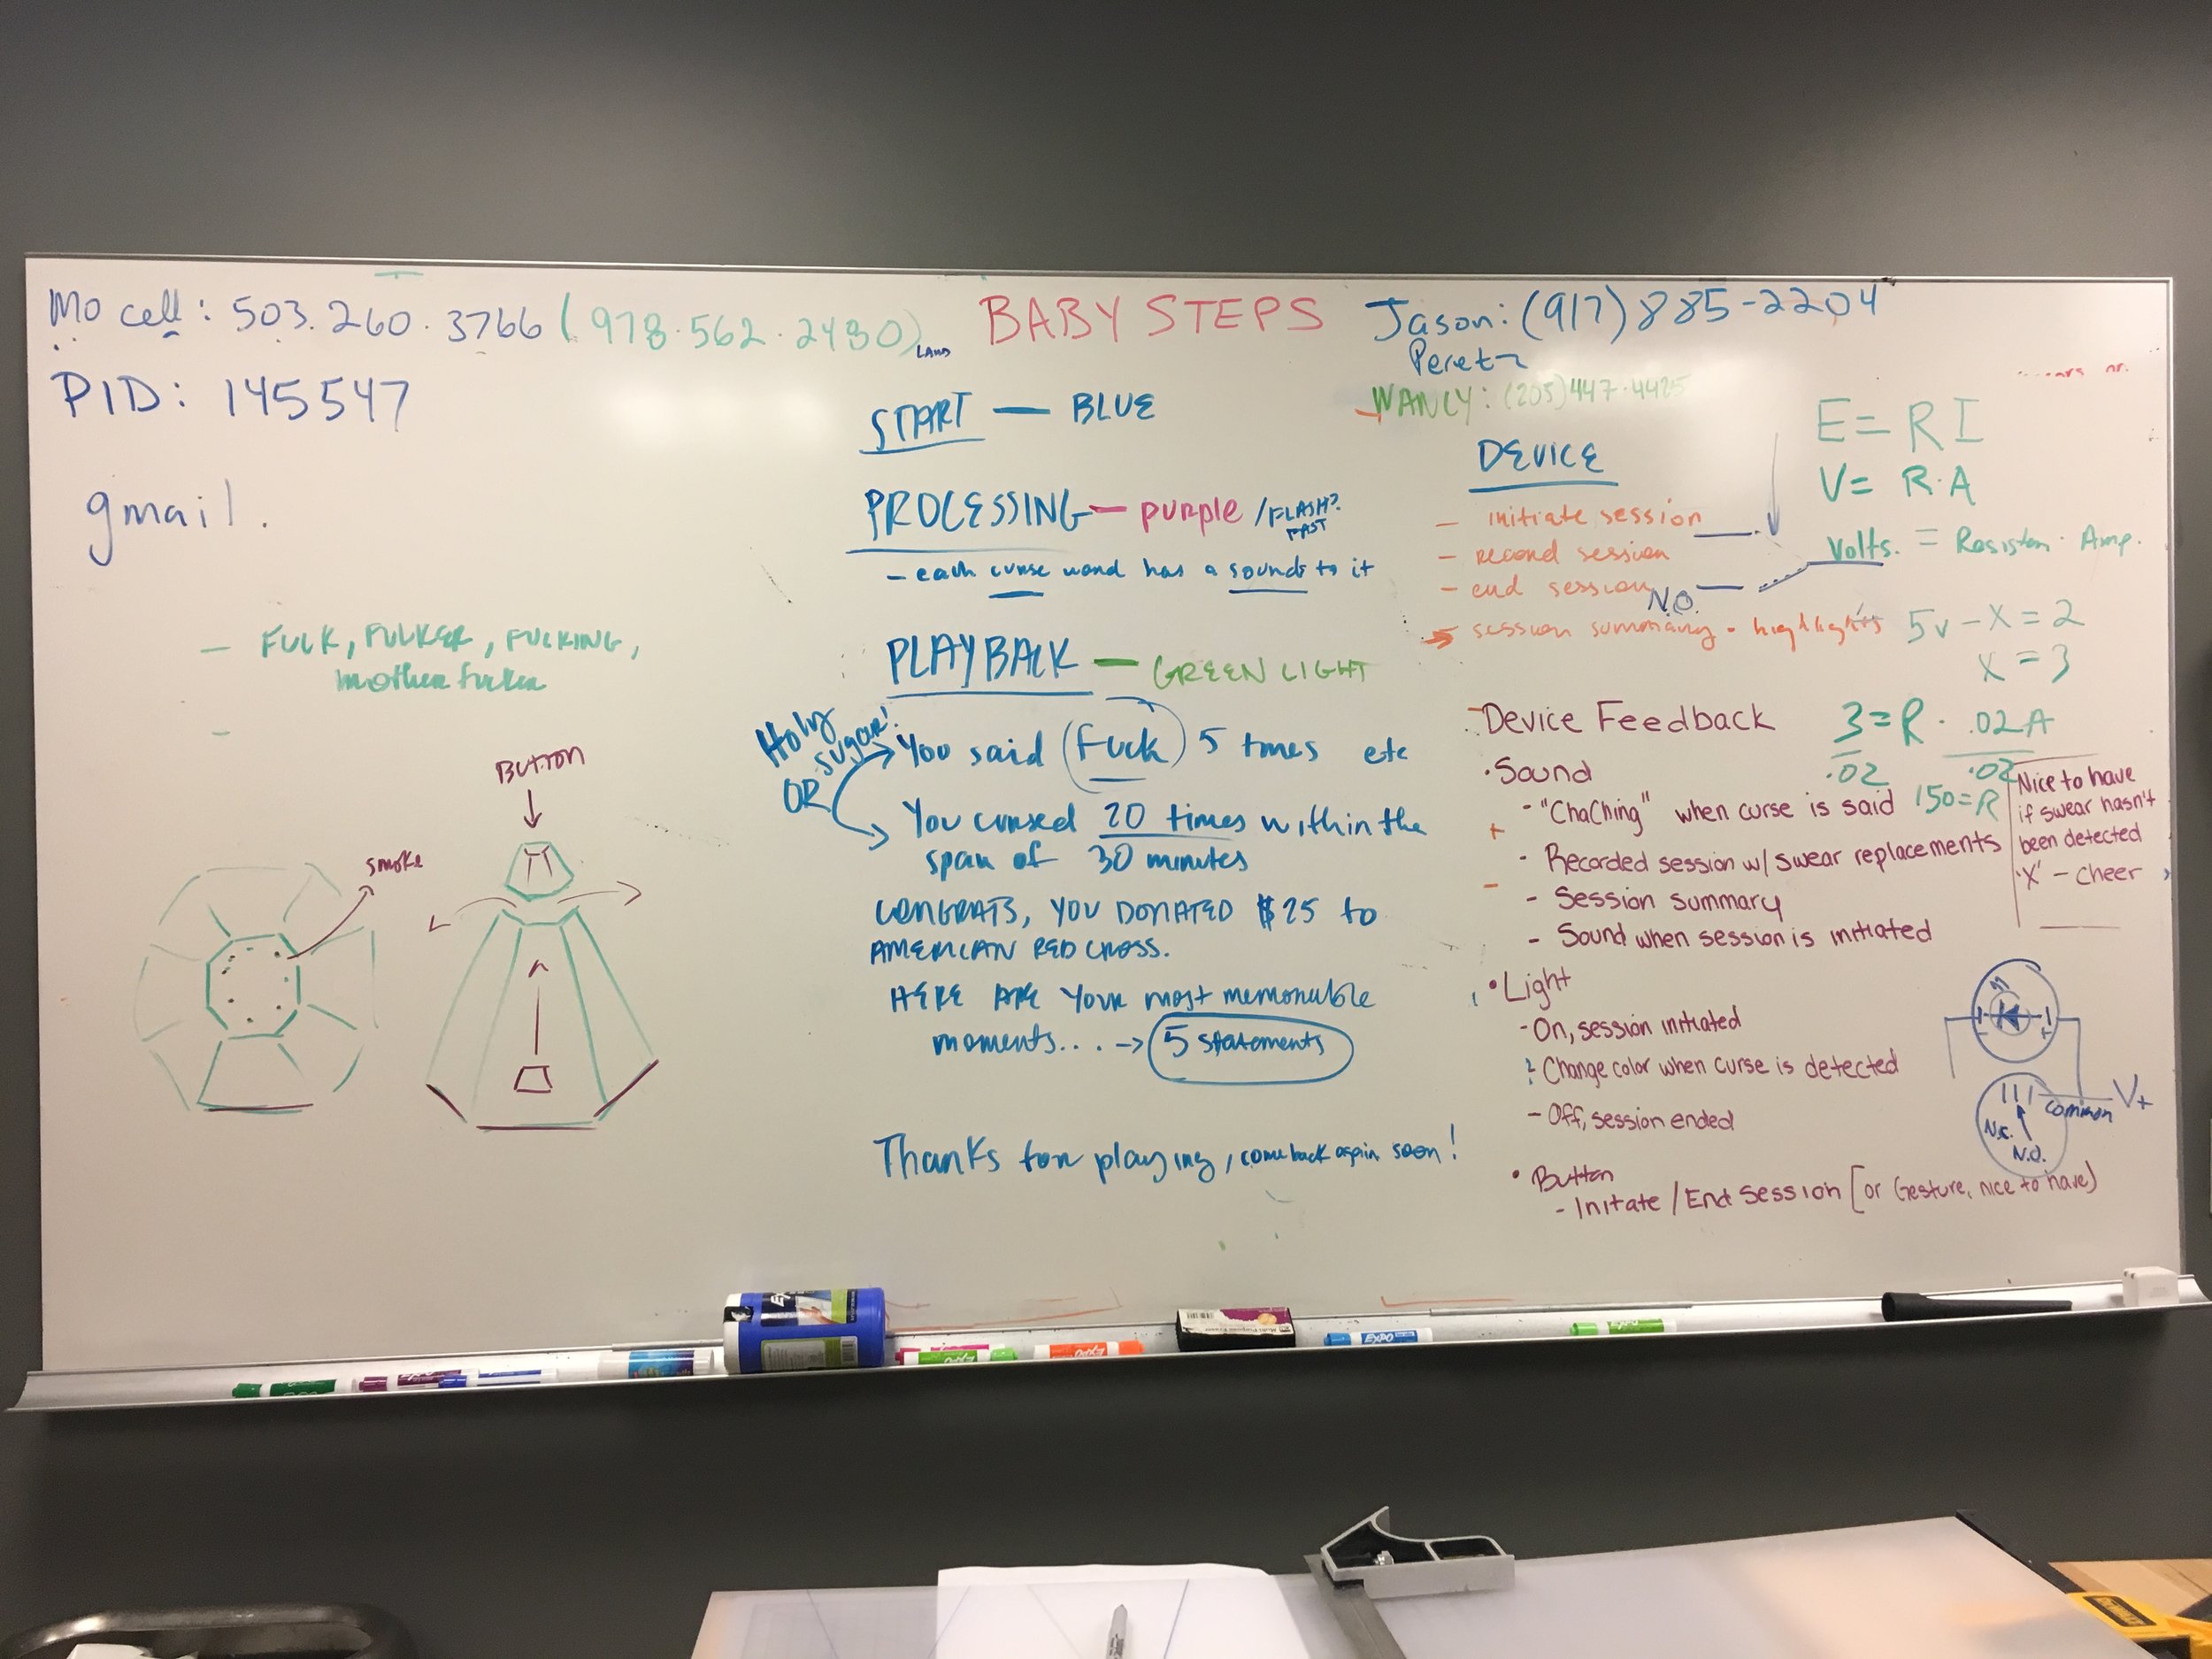 Mo cell: 503.260.3766 (978.562.2480) LAND
PID: 145547
gmail.
BABY STEPS
Jason: (917) 885-2204
Peretz
WANCY: (205) 447-4425
START — BLUE
PROCESSING — PURPLE / FLASH? FAST
- each curse word has a sounds to it
PLAYBACK — GREEN LIGHT
Holy sugar!
OR
You said (Fuck) 5 times etc
You cursed 20 times within the
span of 30 minutes
CONGRATS, YOU DONATED $25 to
AMERICAN RED CROSS.
HERE ARE YOUR most memorable
moments... → 5 statements
Thanks for playing, come back again soon!
- FUCK, FUCKER, FUCKING,
motherfucker
-
BUTTON
smoke
DEVICE
- initiate session
- record session
- end session
N.O.
→ session summary - highlights
E = RI
V = R·A
Volts. = Resisten · Amp.
5v - x = 2
x = 3
3 = R · .02A
.02 .02
150 = R
- Device Feedback
• Sound
- "ChaChing" when curse is said
- Recorded session w/ swear replacements
- Session summary
- Sound when session is initiated
Nice to have
if swear hasn't
been detected
"X" - cheer
• Light
- On, session initiated
? Change color when curse is detected
- Off, session ended
• Button
- Initate / End Session [or Gesture, nice to have)
common V+
N.C.
N.O.
EXPO